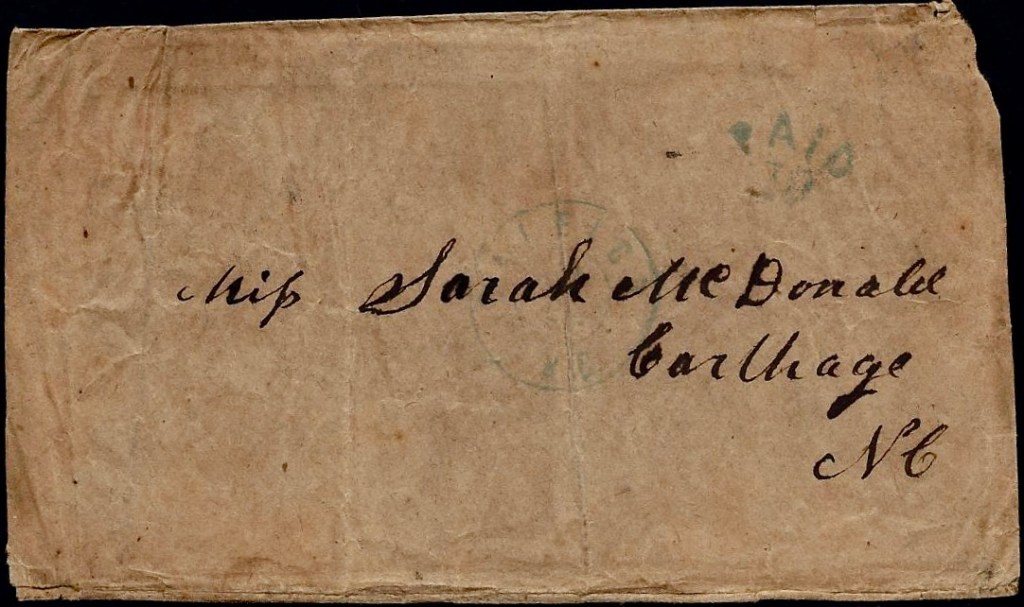 PAID
10
Miſs Sarah McDonald
Carthage
N C